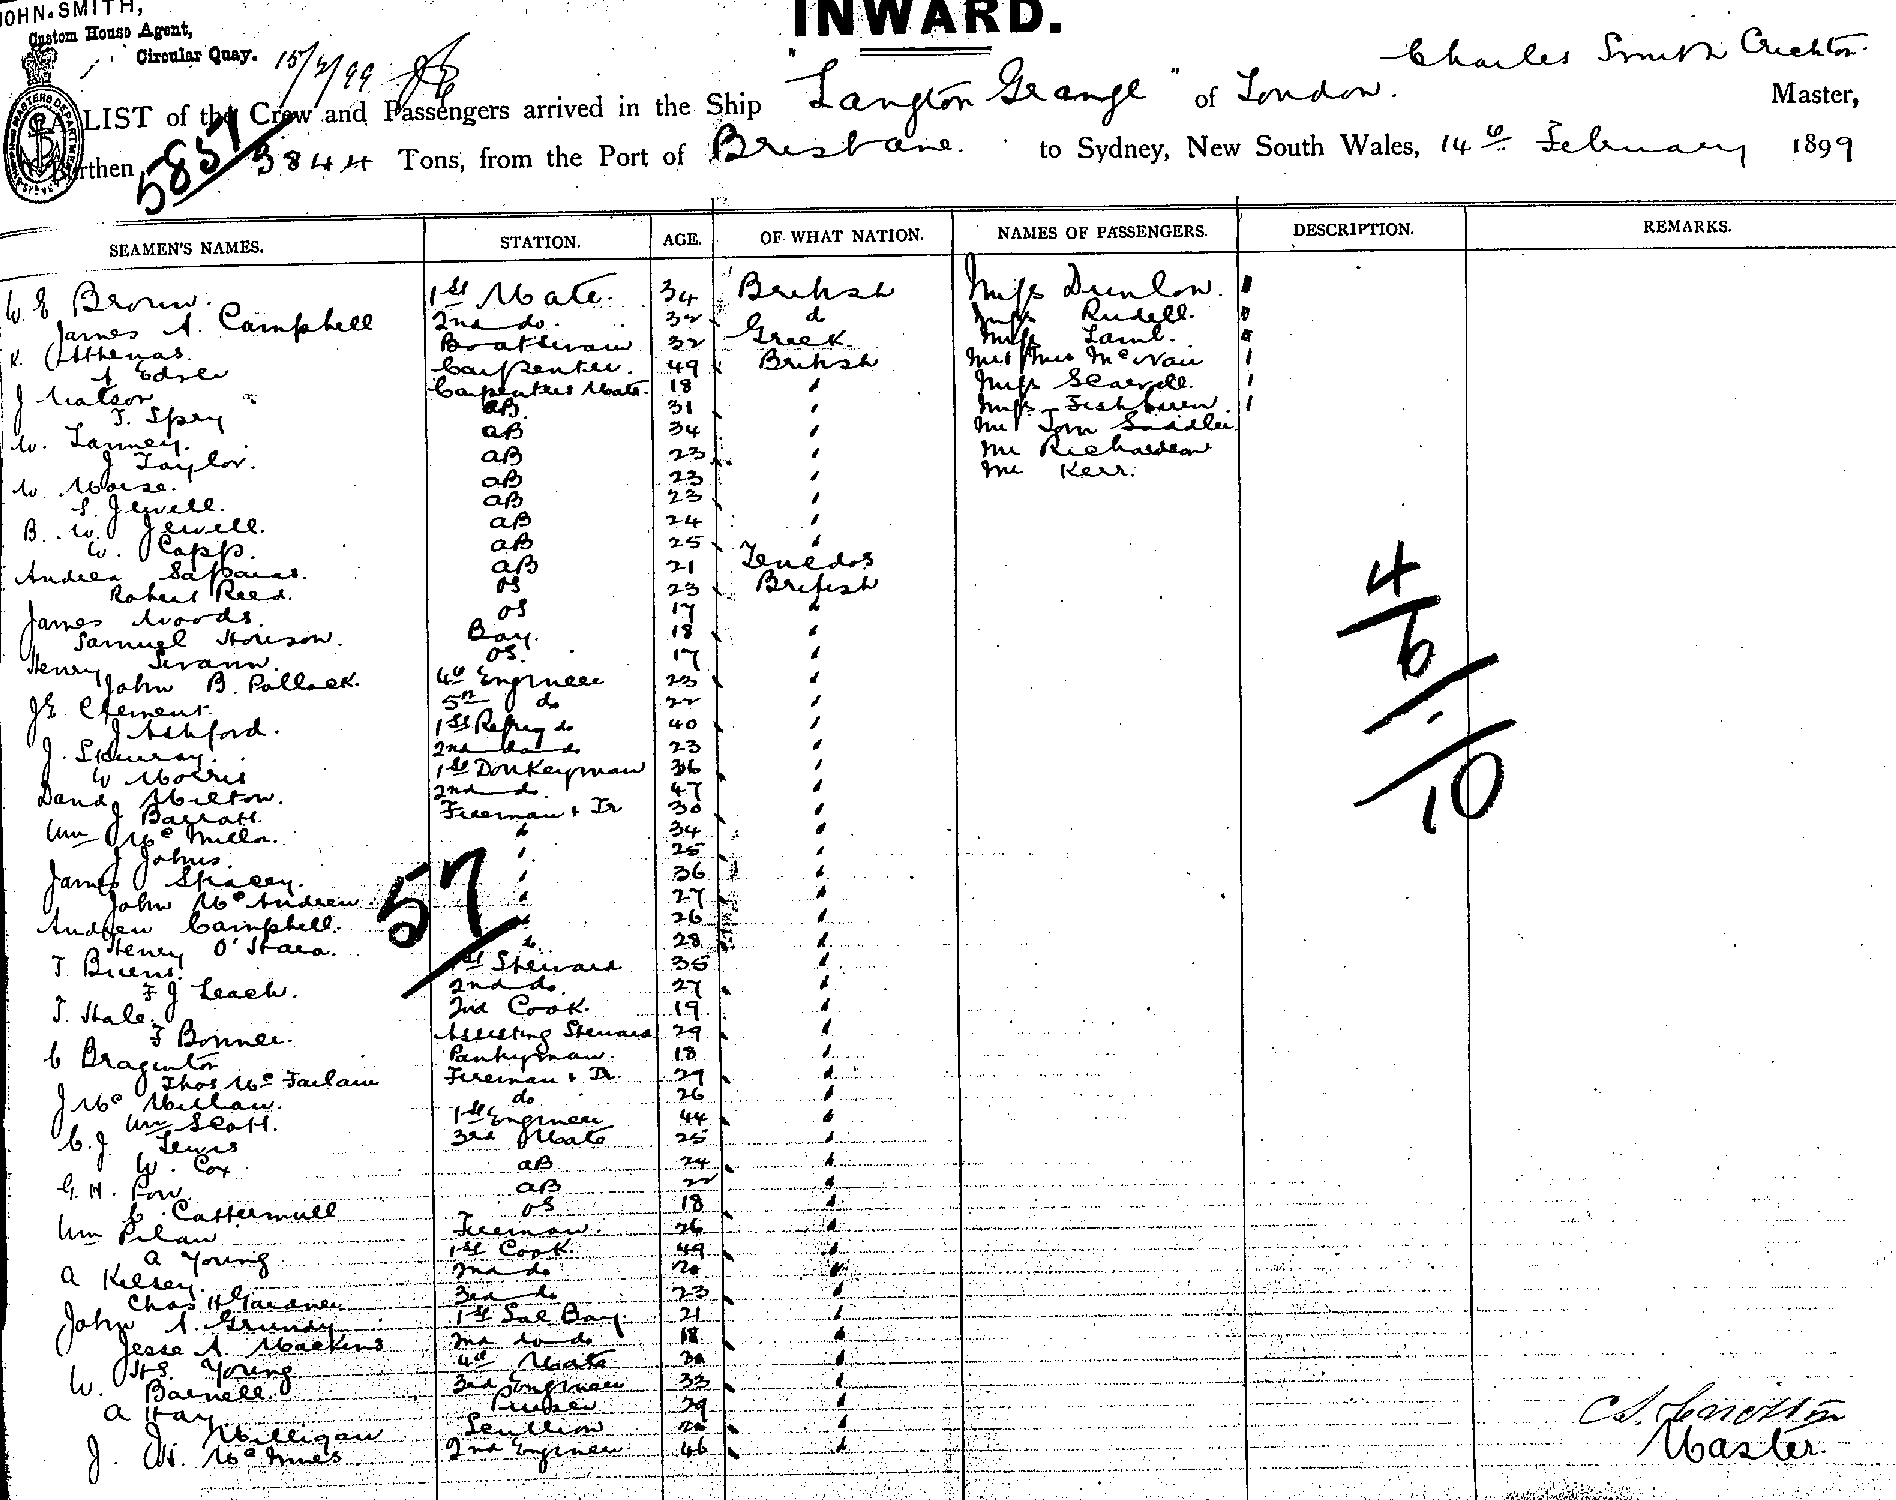 JOHN SMITH,
Custom House Agent,
Circular Quay. 15/2/99
INWARD.
Charles Smith Crichton
LIST of the Crew and Passengers arrived in the Ship "Langton Grange" of London. Master,
Burthen 3844 Tons, from the Port of Brisbane. to Sydney, New South Wales, 14th February 1899
5857
SEAMEN'S NAMES. STATION. AGE. OF WHAT NATION. NAMES OF PASSENGERS. DESCRIPTION. REMARKS.
W E Brown. 1st Mate. 34 British Miss Dunlow. 1
James A. Campbell 2nd do. 32 d Miss Rudell.
K Athenas. Boatswain 32 Greek. Miss Lamb.
A Edsle Carpenter. 49 British Mr & Mrs McNair 1
J Watson Carpenters Mate. 18 " Miss 1
T. Spry AB 31 " Miss 1
W. Lanney. AB 34 " Mr Tom Saddler
J Taylor. AB 23 " Mr Richardson
W Morse. AB 23 " Mr Kerr.
S. Jewell. AB 23 "
B. W. Jewell. AB 24 "
W. Capp. AB 25 "
Andrea AB 21 Tenedos
Robert Reed. OS 23 British
James Woods. OS 17 "
Samuel Howson. Boy. 18 "
Henry Swann. OS. 17 "
John B. Pollock. 4th Engineer 23 "
J E Clement. 5th do 22 "
J Ashford. 1st Refrig do 40 "
J. Skurray. 2nd do do 23 "
W Morris 1st Donkeyman 36 "
David Milton. 2nd do. 47 "
J Barratt Fireman & Tr 30 "
Wm McMillan. " 34 "
J Johns. " 25 "
James Stacey. " 36 "
John McAndrew " 27 "
Andrew Campbell. " 26 "
Henry O'Hara. " 28 "
T Burns. 1st Steward 35 "
F J Leach. 2nd do. 27 "
T. Hale. 2nd Cook. 19 "
F Bonner. Assisting Steward 29 "
C Braginton Pantryman. 18 "
Thos McFarlane Fireman & Tr 29 "
J McMillan. do 26 "
Wm Scott. 1st Engineer 44 "
C. J. Lewis 3rd Mate 25 "
W. Cox. AB 24 "
G. H. Pow. AB 22 "
C. Cattermull OS 18 "
Wm Pilau Fireman. 26 "
A Young 1st Cook 49 "
A Kelsey. 2nd do 20 "
Chas H Gardner 3rd do 23 "
John A. Grundy 1st Sal Boy 21 "
Jesse A. Mackins 2nd do do 18 "
H S. Young 4th Mate 20 "
W. Barnell. 3rd Engineer 33 "
A Hay Purser 29 "
J Milligan Scullion 20 "
J. W. McInnes 2nd Engineer 46 "
57
4
6
10
C S. Crichton
Master.